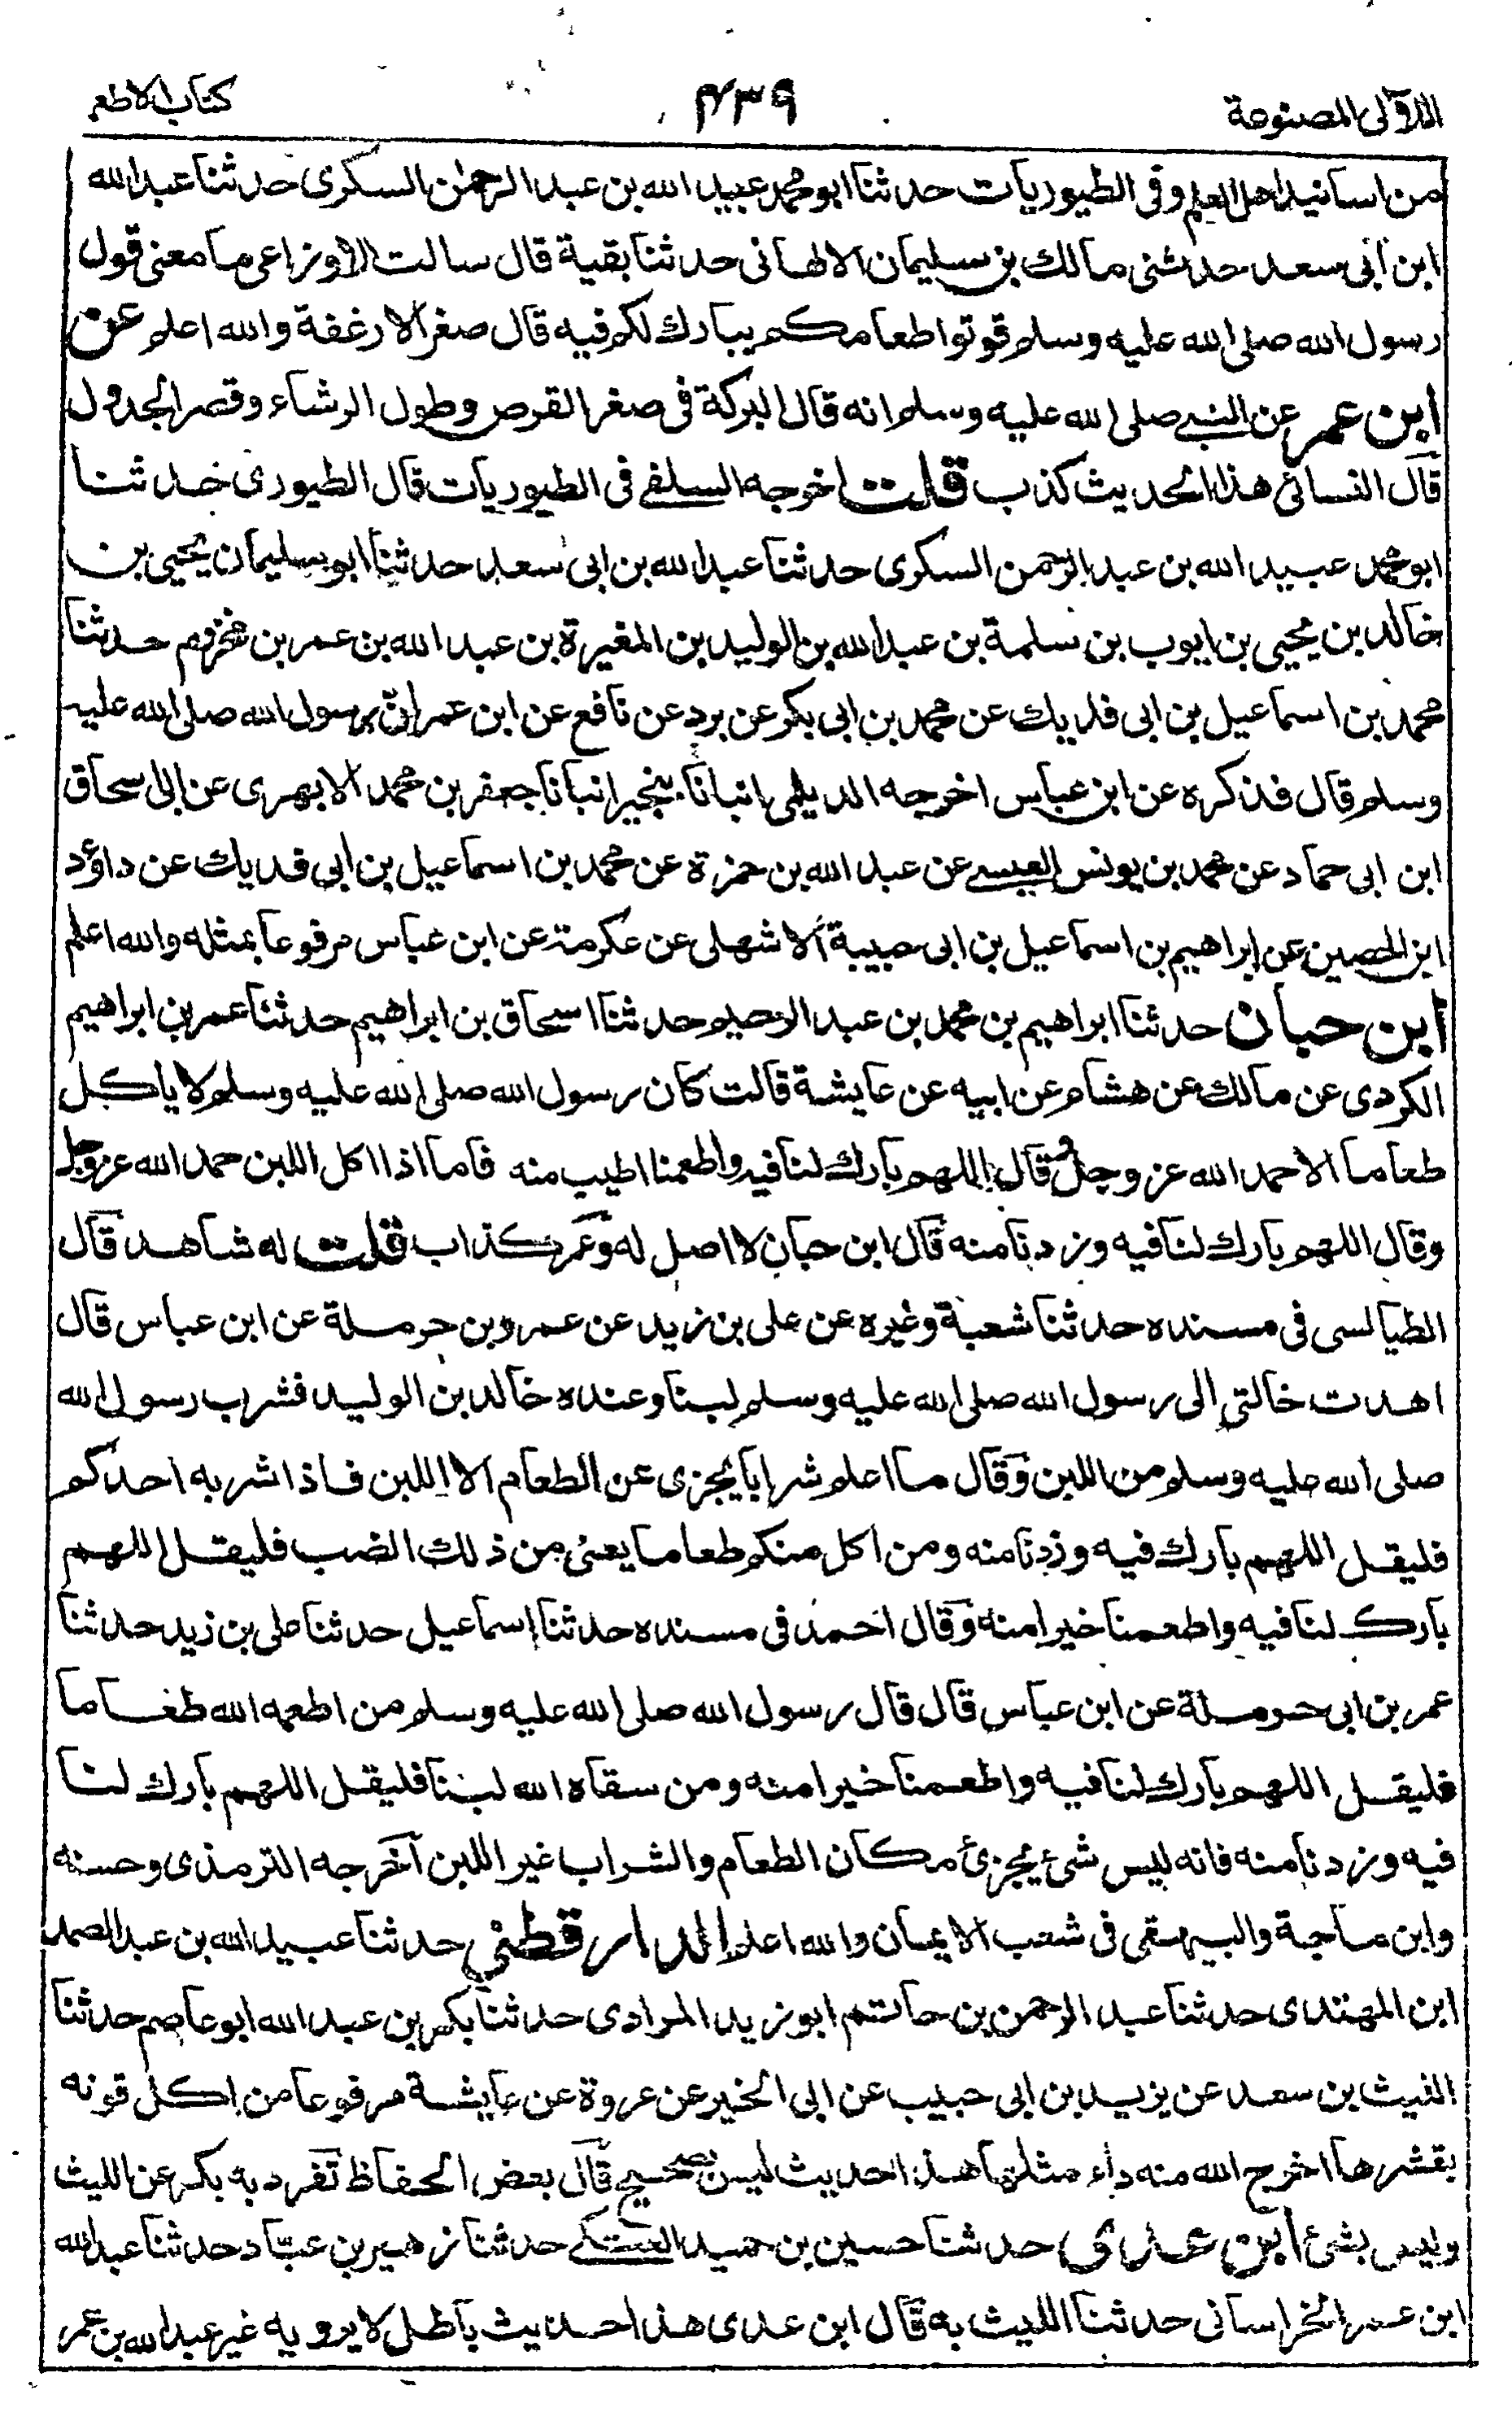 اللآلى المصنوعة
٤٣٩
كتاب الاطعم
من اسانيد اهل العلم وفى الطيوريات حدثنا ابو محمد عبيد الله بن عبد الرحمٰن السكرى حدثنا عبد الله
ابن ابى سعد حدثنى مالك بن سليمان الالهانى حدثنا بقية قال سالت الاوزاعى ما معنى قول
رسول الله صلى الله عليه وسلم قوتوا طعامكم يبارك لكم فيه قال صغر الارغفة والله اعلم عن
ابن عمر عن النبى صلى الله عليه وسلم انه قال البركة فى صغر القرص وطول الرشاء وقصر الجدول
قال النسائى هذا الحديث كذب قلت اخرجه السلفى فى الطيوريات قال الطيورى حدثنا
ابو محمد عبيد الله بن عبد الرحمن السكرى حدثنا عبد الله بن ابى سعد حدثنا ابو سليمان يحيى بن
خالد بن يحيى بن ايوب بن سلمة بن عبد الله بن الوليد بن المغيرة بن عبد الله بن عمر بن مخزوم حدثنا
محمد بن اسماعيل بن ابى فديك عن محمد بن ابى بكر عن برد عن نافع عن ابن عمر انّ رسول الله صلى الله عليه
وسلم قال فذكره عن ابن عباس اخرجه الديلمى انبانا بنجير انبانا جعفر بن محمد الابهرى عن ابى سحاق
ابن ابى حماد عن محمد بن يونس العبسى عن عبد الله بن حمزة عن محمد بن اسماعيل بن ابى فديك عن داؤد
ابن الحصين عن ابراهيم بن اسماعيل بن ابى حبيبة الاشهلى عن عكرمة عن ابن عباس مرفوعا بمثله والله اعلم
ابن حبان حدثنا ابراهيم بن محمد بن عبد الرحيم حدثنا اسحاق بن ابراهيم حدثنا عمر بن ابراهيم
الكردى عن مالك عن هشام عن ابيه عن عايشة قالت كان رسول الله صلى الله عليه وسلم لا ياكل
طعاما الا حمد الله عز وجل قال اللهم بارك لنا فيه واطعمنا اطيب منه فاما اذا اكل اللبن حمد الله عز وجل
وقال اللهم بارك لنا فيه وزدنا منه قال ابن حبان لا اصل له وعمر كذاب قلت له شاهد قال
الطيالسى فى مسنده حدثنا شعبة وغيره عن على بن زيد عن عمرو بن حرملة عن ابن عباس قال
اهدت خالتى الى رسول الله صلى الله عليه وسلم لبنا وعنده خالد بن الوليد فشرب رسول الله
صلى الله عليه وسلم من اللبن وقال ما اعلم شرابا يجزى عن الطعام الا اللبن فاذا شربه احدكم
فليقل اللهم بارك فيه وزدنا منه ومن اكل منكم طعاما يعنى من ذلك الضب فليقل اللهم
بارك لنا فيه واطعمنا خيرا منه وقال احمد فى مسنده حدثنا اسماعيل حدثنا على بن زيد حدثنا
عمر بن ابى حرملة عن ابن عباس قال قال رسول الله صلى الله عليه وسلم من اطعمه الله طعاما
فليقل اللهم بارك لنا فيه واطعمنا خيرا منه ومن سقاه الله لبنا فليقل اللهم بارك لنا
فيه وزدنا منه فانه ليس شىء يجزئ مكان الطعام والشراب غير اللبن اخرجه الترمذى وحسنه
وابن ماجة والبيهقى فى شعب الايمان والله اعلم الدارقطنى حدثنا عبيد الله بن عبد الصمد
ابن المهتدى حدثنا عبد الرحمن بن حاتم ابو زيد المرادى حدثنا بكر بن عبد الله ابو عاصم حدثنا
الليث بن سعد عن يزيد بن ابى حبيب عن ابى الخير عن عروة عن عايشة مرفوعا من اكل فوله
بقشرها اخرج الله منه داء مثلها هذا حديث ليس بصحيح قال بعض الحفاظ تفرد به بكر عن الليث
وليس بشئ ابن عدى حدثنا حسين بن حميد العتكى حدثنا زهير بن عبّاد حدثنا عبد الله
ابن عمر الخراسانى حدثنا الليث به قال ابن عدى هذا حديث باطل لا يرويه غير عبد الله بن عمر